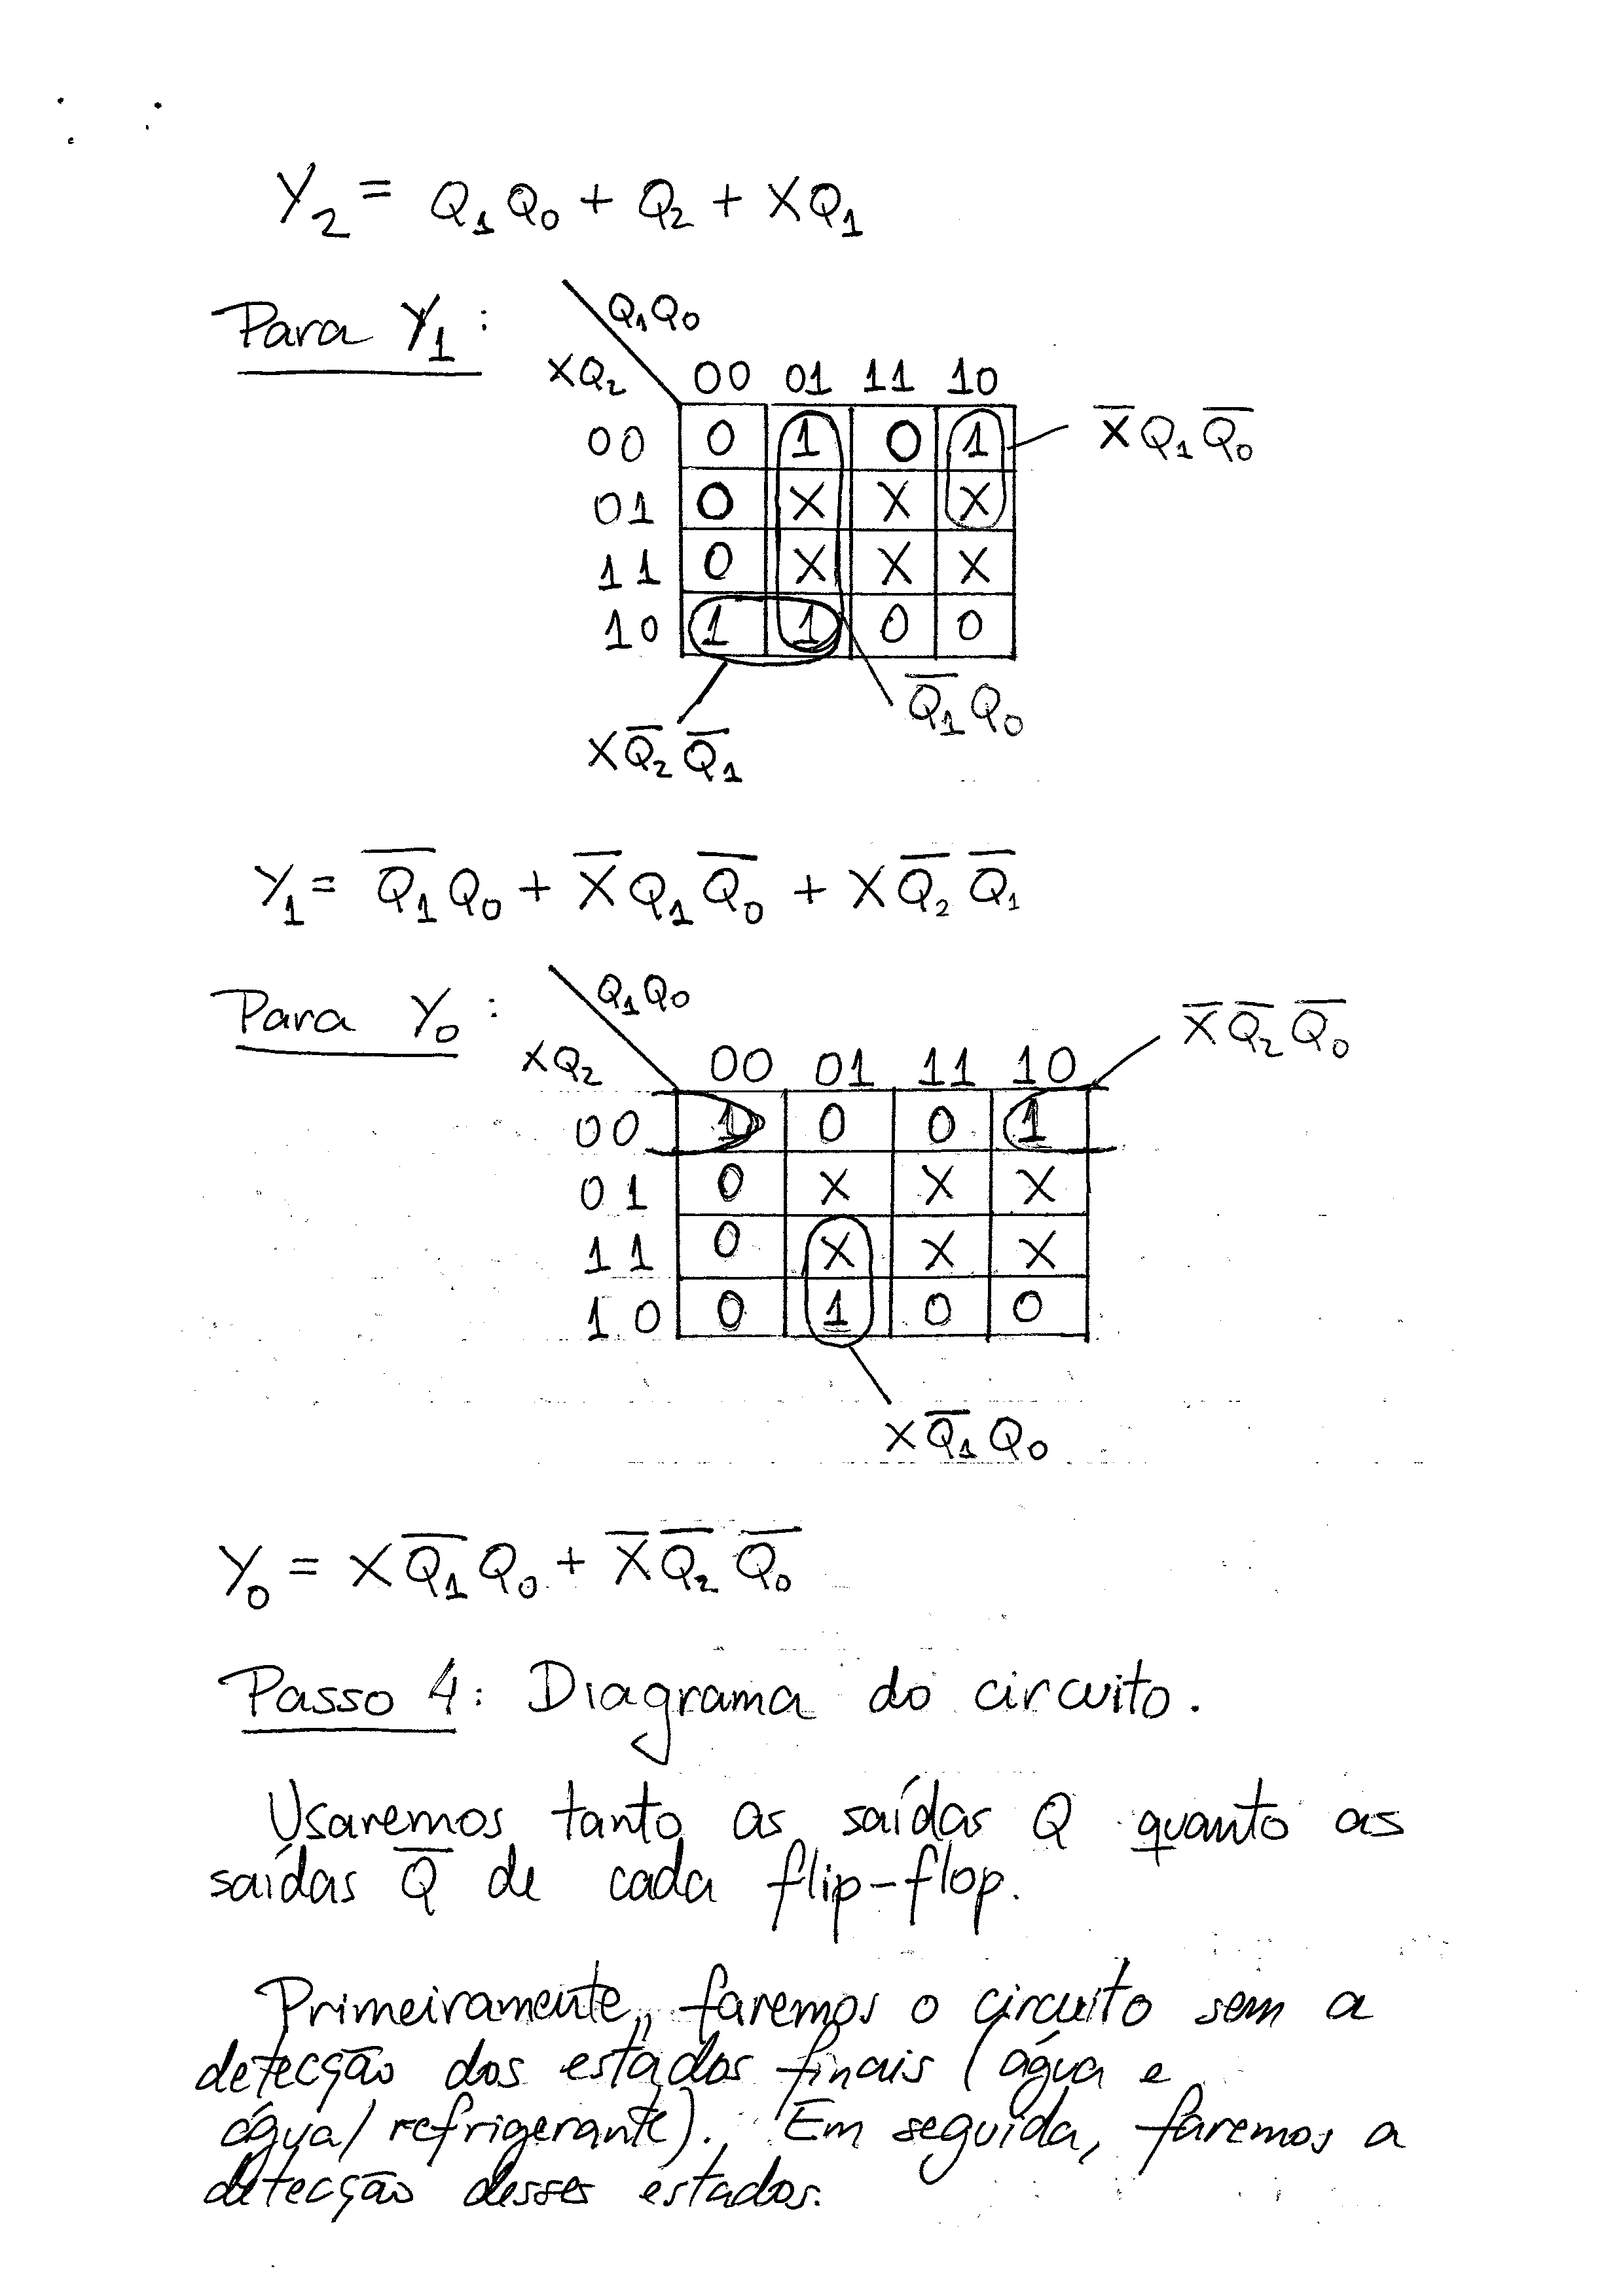 Y₂ = Q₁Q₀ + Q₂ + XQ₁
Para Y₁:
Q₁Q₀
XQ₂ 00 01 11 10
00 0 1 0 1 X̅Q₁Q̅₀
01 0 X X X
11 0 X X X
10 1 1 0 0
Q̅₁Q₀
XQ̅₂Q̅₁
Y₁ = Q̅₁Q₀ + X̅Q₁Q̅₀ + XQ̅₂Q̅₁
Para Y₀:
Q₁Q₀
X̅Q̅₂Q̅₀
XQ₂ 00 01 11 10
00 1 0 0 1
01 0 X X X
11 0 X X X
10 0 1 0 0
XQ̅₁Q₀
Y₀ = XQ̅₁Q₀ + X̅Q̅₂Q̅₀
Passo 4: Diagrama do circuito.
Usaremos tanto as saídas Q quanto as
saídas Q̅ de cada flip-flop.
Primeiramente, faremos o circuito sem a
detecção dos estados finais (água e
água/refrigerante). Em seguida, faremos a
detecção desses estados.